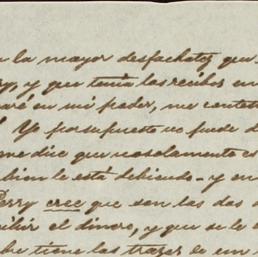 n la mayor desfachatez que
y, y que tenía los recibos en
ará en mi poder, me contest
Yo por supuesto no puede d
me dice que no solamente es
bien le está debiendo - y en
Perry cree que son las dos
el dinero, y que se le
tiene las trazas de em